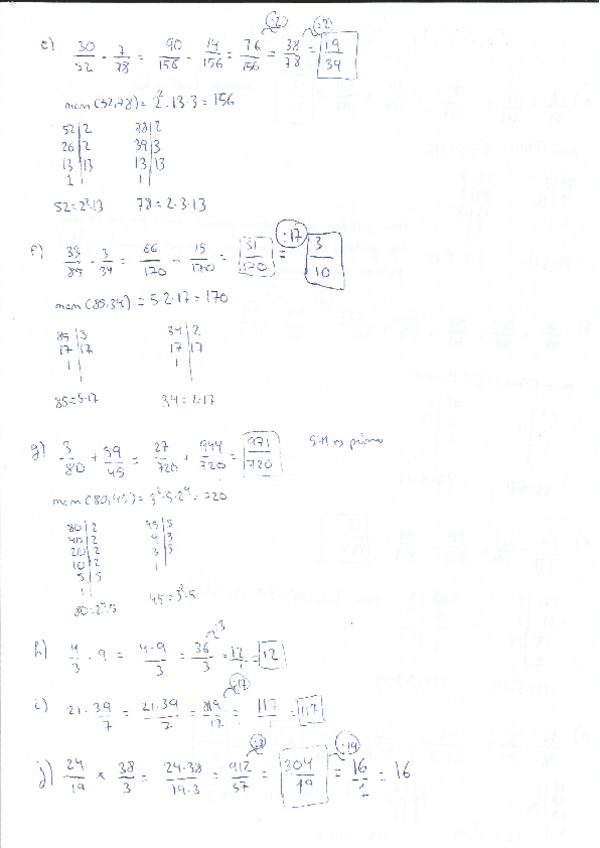 e) 30/52 - 7/78 = 90/156 - 14/156 = 76/156 = (:2) 38/78 = (:2) 19/34
mcm (52,78) = 2²·13·3 = 156
52|2 78|2
26|2 39|3
13|13 13|13
1| 1|
52=2²·13 78=2·3·13
f) 33/85 - 3/34 = 66/170 - 15/170 = 51/170 = (:17) 3/10
mcm (85,34) = 5·2·17 = 170
85|5 34|2
17|17 17|17
1| 1|
85=5·17 34=2·17
g) 3/80 + 59/45 = 27/720 + 944/720 = 971/720
mcm (80,45) = 3²·5·2⁴ = 720
80|2 45|5
40|2 9|3
20|2 3|3
10|2 1|
5|5
1|
80=2⁴·5 45=3²·5
h) 4/3 · 9 = 4·9/3 = 36/3 = :3 12/1 = 12
i) 21·39/7 = 21·39/7 = 819/ = 117/1 = 117
j) 24/19 × 38/3 = 24·38/19·3 = 912/57 = (:3) 304/19 = (:19) 16/1 = 16